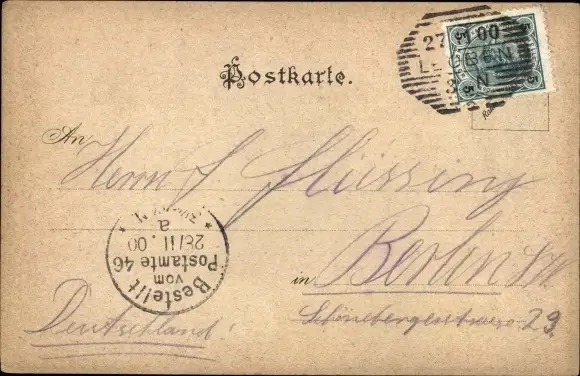 27 00
5 5
5 5
Postkarte.
An
Herrn J. Flüssing
Bestellt
vom
Postamte 46
28/11.00
a
in Berlin S.W.
Schönebergerstrasse 29.
Deutschland!